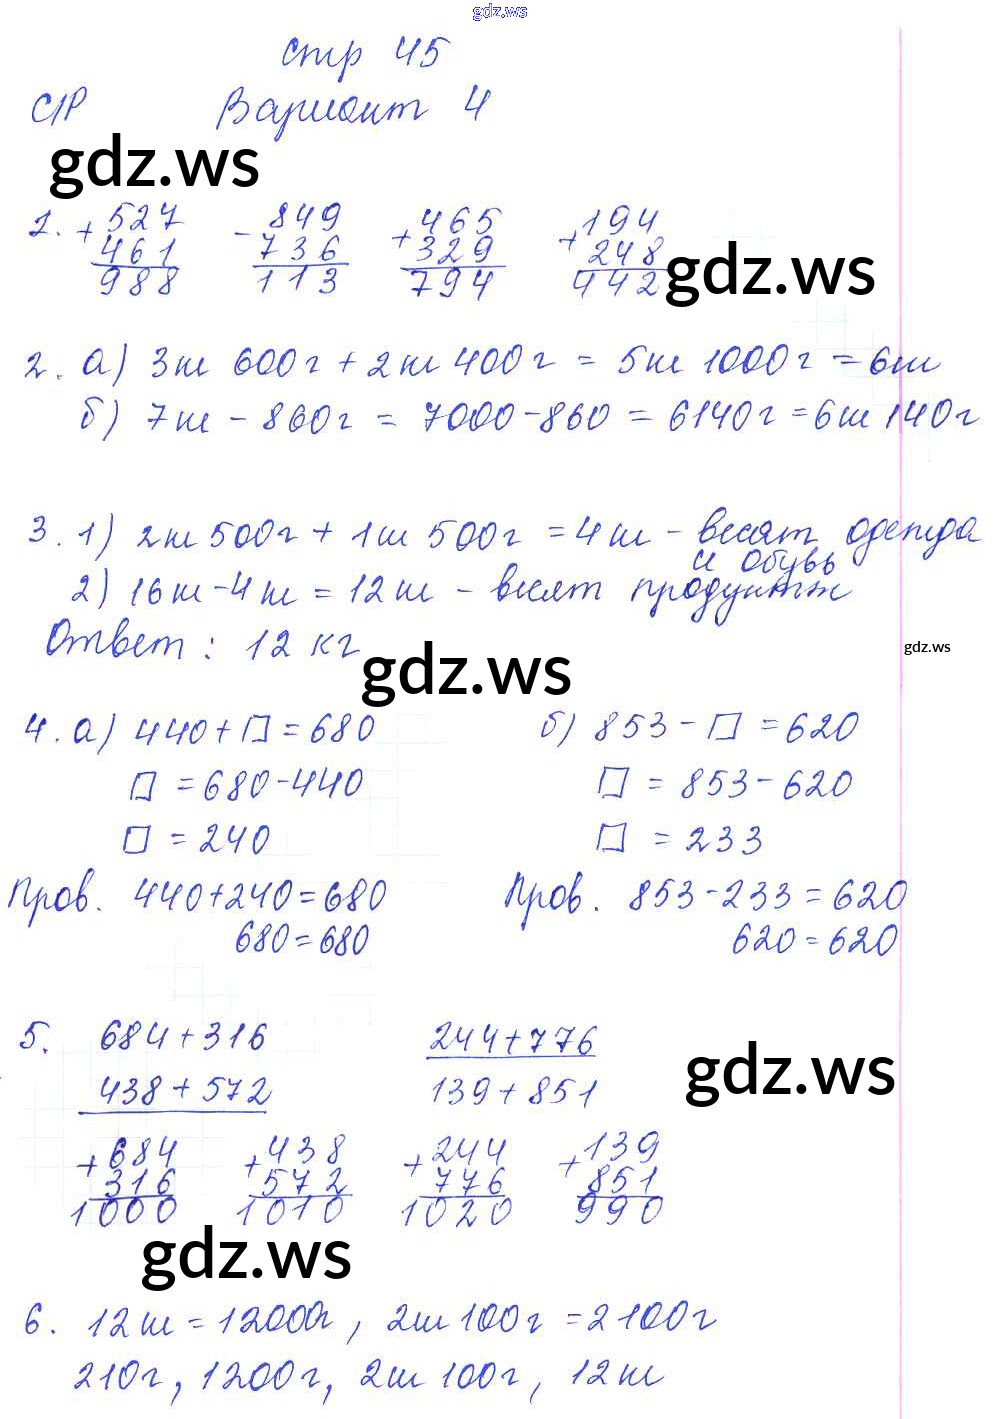 gdz.ws
стр 45
С/Р Вариант 4
gdz.ws
1. + 527 - 849 + 465 + 194
461 736 329 248
988 113 794 442
gdz.ws
2. а) 3кг 600г + 2кг 400г = 5кг 1000г = 6кг
б) 7кг - 860г = 7000-860 = 6140г = 6кг 140г
3. 1) 2кг 500г + 1кг 500г = 4кг - весят одежда
и обувь
2) 16кг - 4кг = 12кг - весят продукты
Ответ: 12 кг
gdz.ws
gdz.ws
4. а) 440 + □ = 680 б) 853 - □ = 620
□ = 680-440 □ = 853-620
□ = 240 □ = 233
Пров. 440+240=680 Пров. 853-233=620
680=680 620=620
5. 684+316 244+776
438+572 139+851
gdz.ws
+ 684 + 438 + 244 + 139
316 572 776 851
1000 1010 1020 990
gdz.ws
6. 12кг = 12000г, 2кг 100г = 2100г
210г, 1200г, 2кг 100г, 12кг